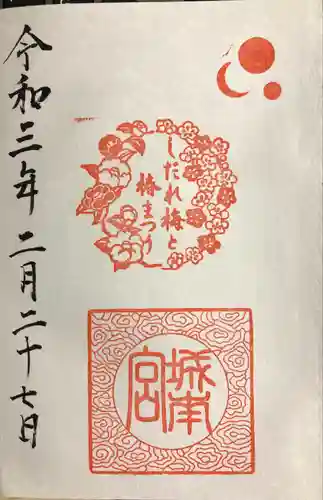 令和三年二月二十七日
しだれ梅と
椿まつり
城南宮